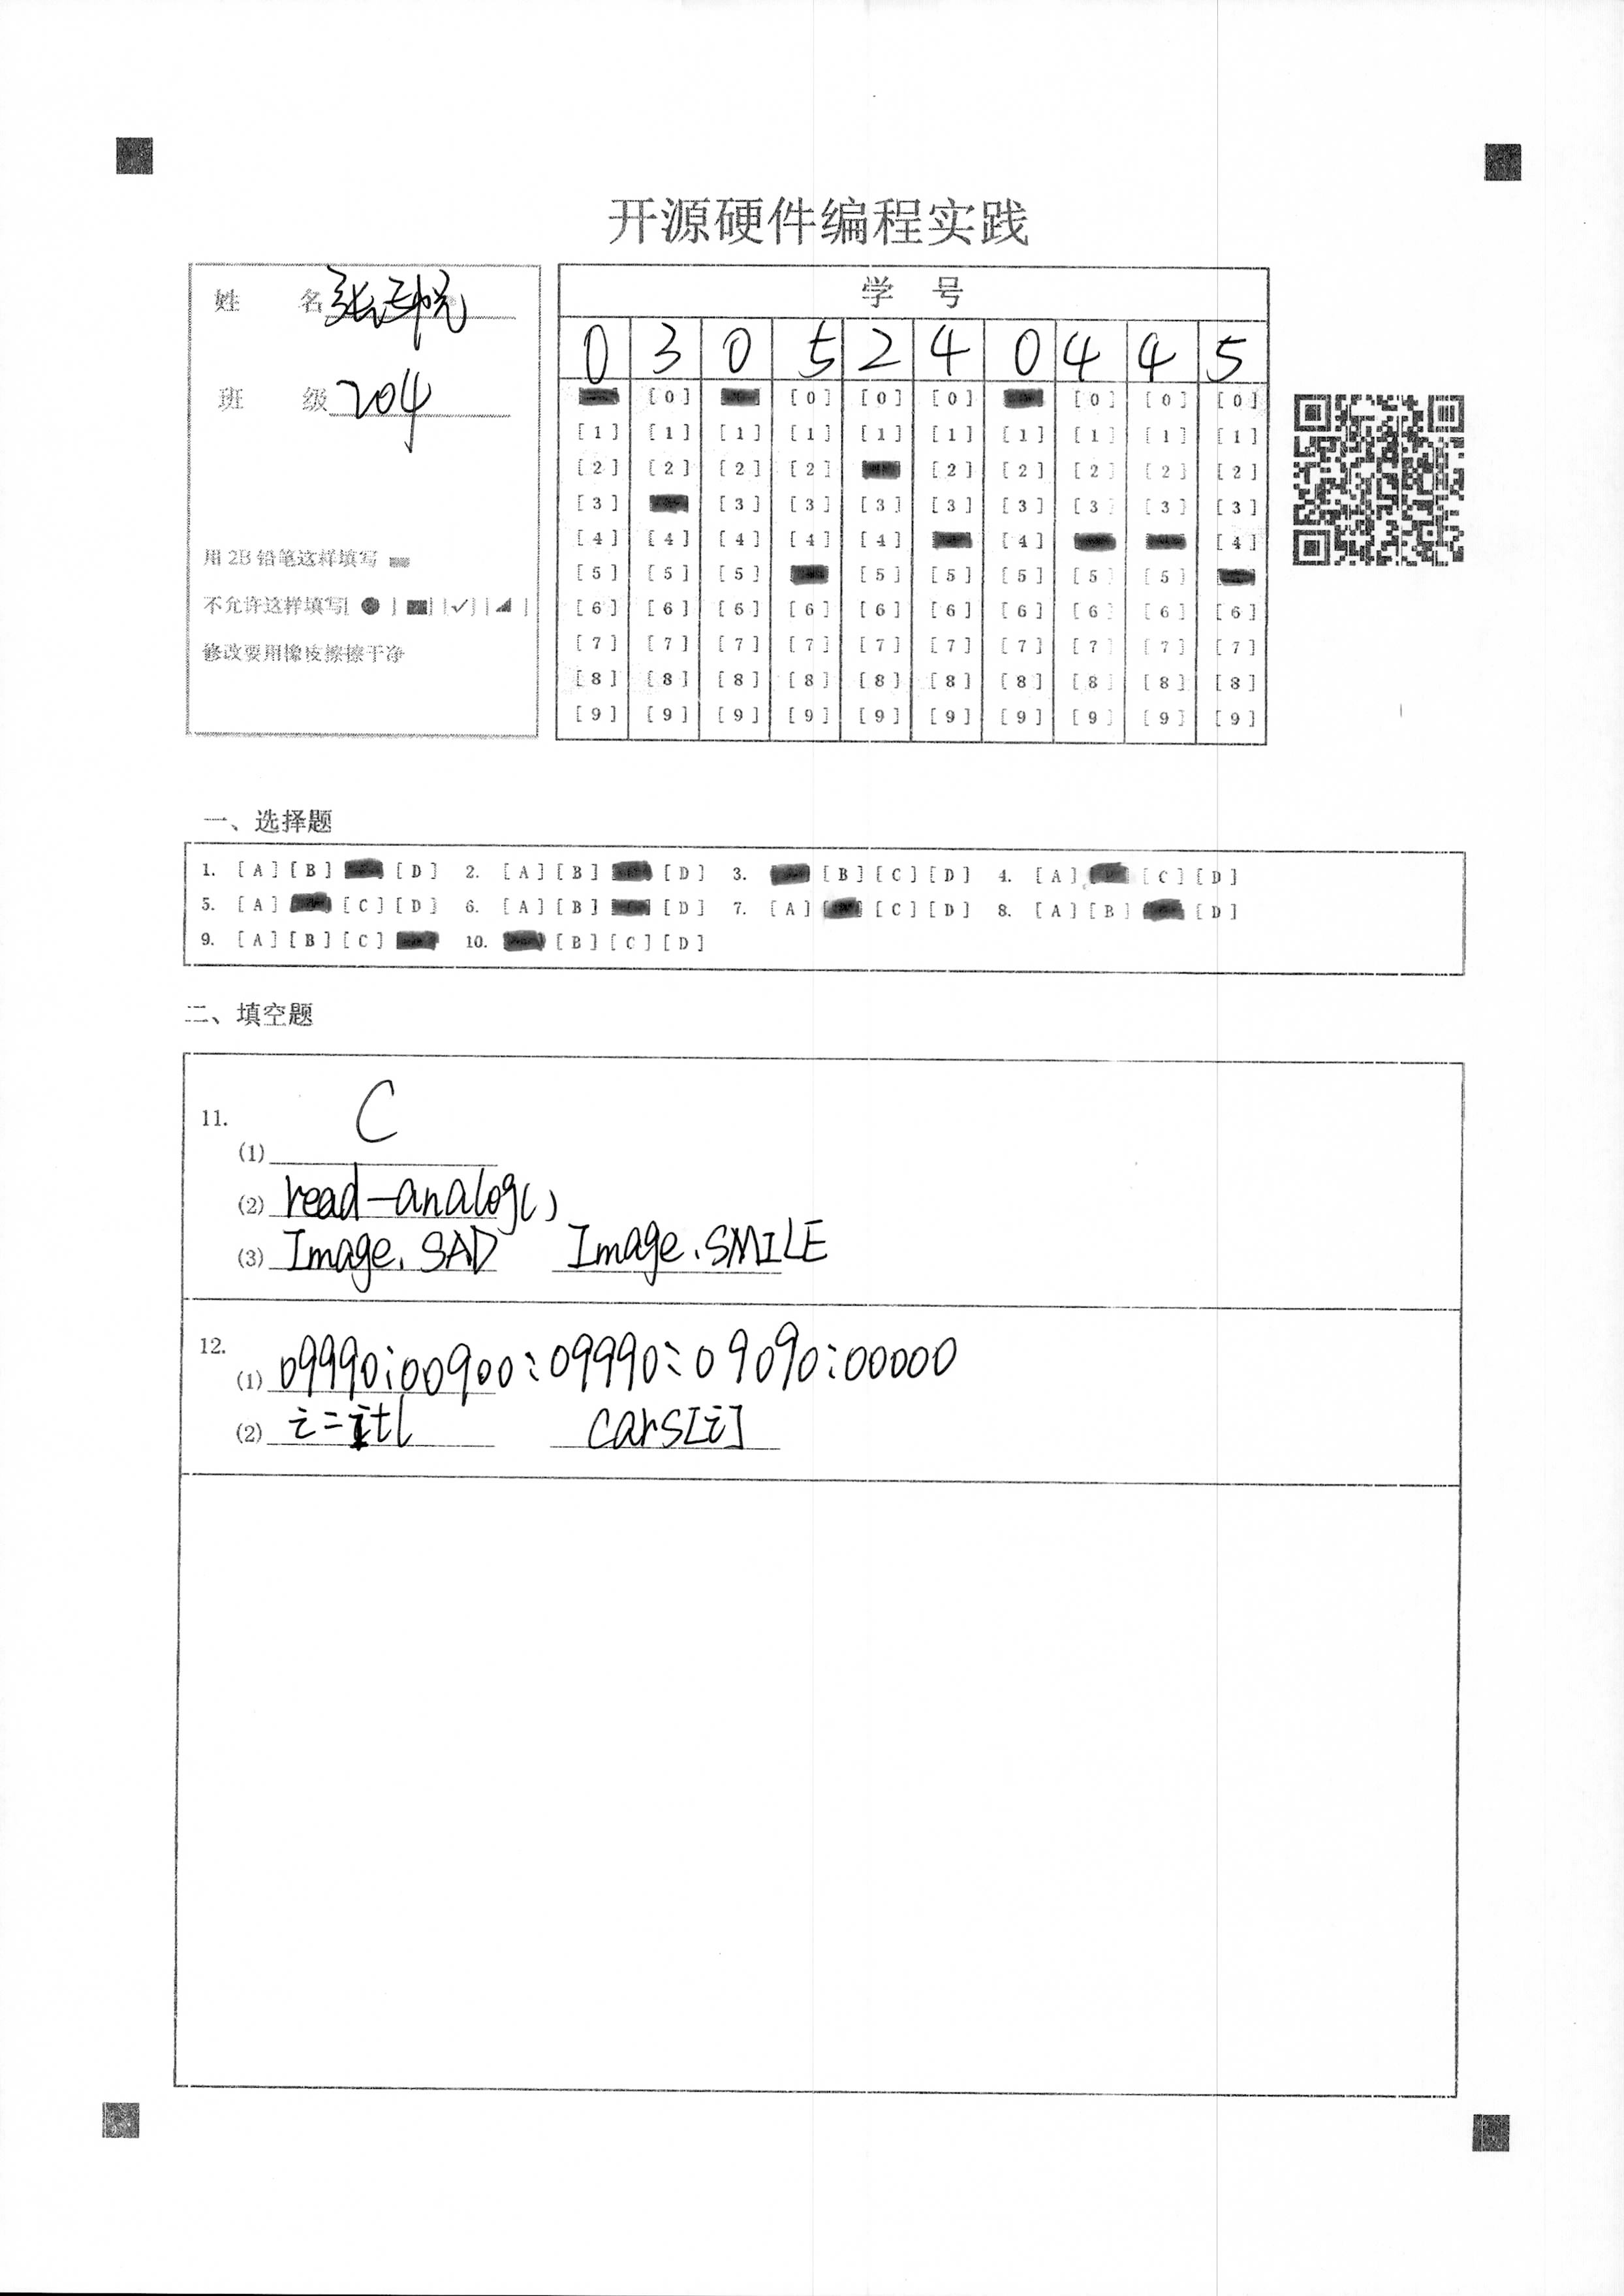 开源硬件编程实践
姓 名 张
班 级 204
用 2B 铅笔这样填写
不允许这样填写[ ● ] [■] [✓] [◢ ]
修改要用橡皮擦擦干净
学 号
0 3 0 5 2 4 0 4 4 5
[0] [0] [0] [0] [0] [0] [0]
[1] [1] [1] [1] [1] [1] [1] [1] [1] [1]
[2] [2] [2] [2] [2] [2] [2] [2] [2]
[3] [3] [3] [3] [3] [3] [3] [3] [3]
[4] [4] [4] [4] [4] [4] [4]
[5] [5] [5] [5] [5] [5] [5] [5]
[6] [6] [6] [6] [6] [6] [6] [6] [6] [6]
[7] [7] [7] [7] [7] [7] [7] [7] [7] [7]
[8] [8] [8] [8] [8] [8] [8] [8] [8] [8]
[9] [9] [9] [9] [9] [9] [9] [9] [9] [9]
一、选择题
1. [A] [B] [D] 2. [A] [B] [D] 3. [B] [C] [D] 4. [A] [C] [D]
5. [A] [C] [D] 6. [A] [B] [D] 7. [A] [C] [D] 8. [A] [B] [D]
9. [A] [B] [C] 10. [B] [C] [D]
二、填空题
11.
(1) C
(2) read-analog()
(3) Image.SAD Image.SMILE
12.
(1) 09990:00900:09990:09090:00000
(2) i=i+1 cars[i]